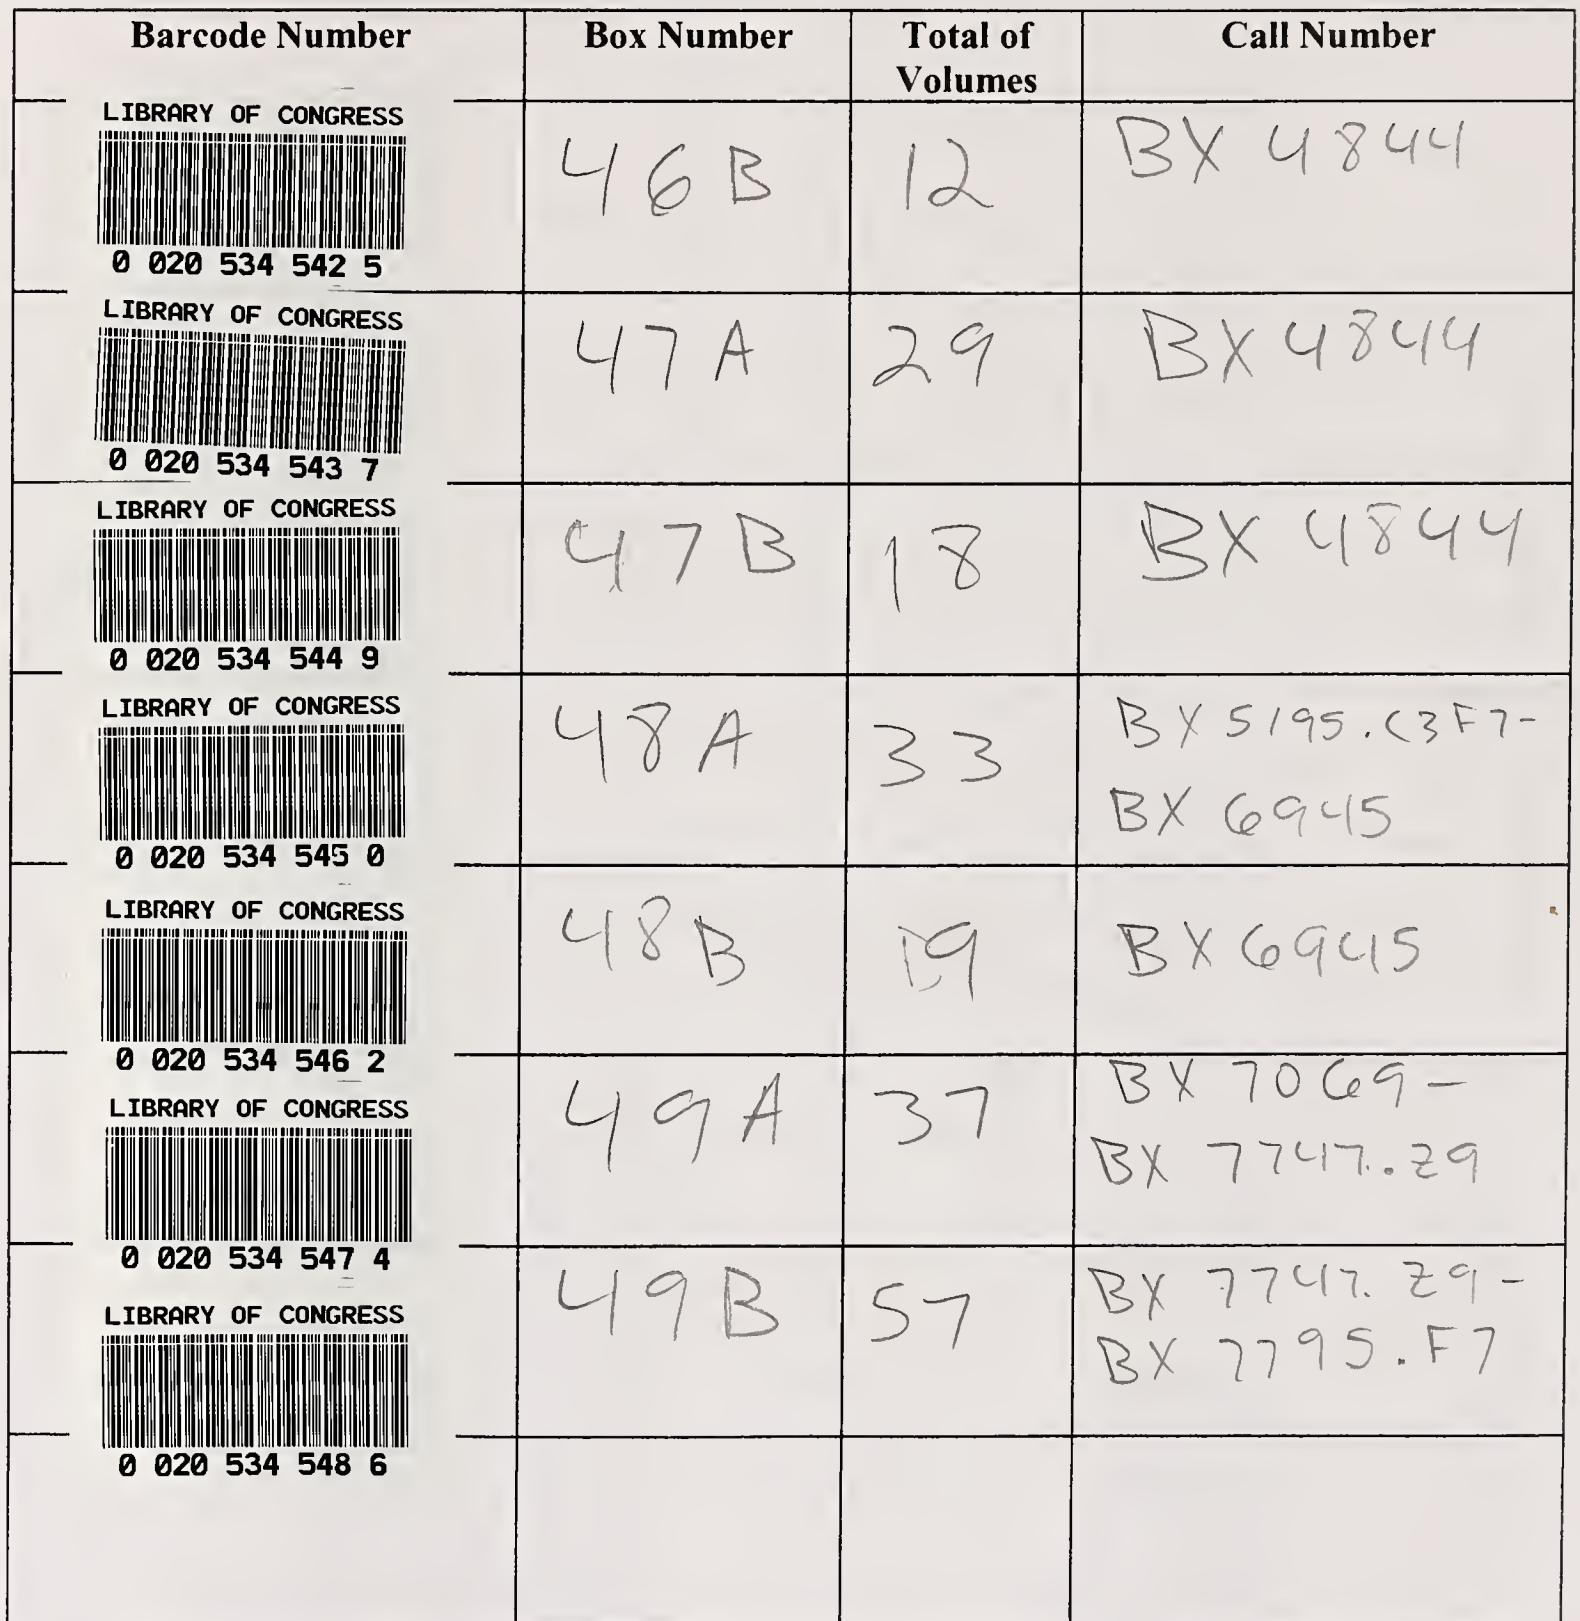 Barcode Number Box Number Total of Volumes Call Number
LIBRARY OF CONGRESS
0 020 534 542 5
46B 12 BX 4844
LIBRARY OF CONGRESS
0 020 534 543 7
47A 29 BX 4844
LIBRARY OF CONGRESS
0 020 534 544 9
47B 18 BX 4844
LIBRARY OF CONGRESS
0 020 534 545 0
48A 33 BX 5195.C3F7-
BX 6945
LIBRARY OF CONGRESS
0 020 534 546 2
48B 19 BX 6945
LIBRARY OF CONGRESS
0 020 534 547 4
49A 37 BX 7069-
BX 7747.Z9
LIBRARY OF CONGRESS
0 020 534 548 6
49B 57 BX 7747.Z9-
BX 7795.F7